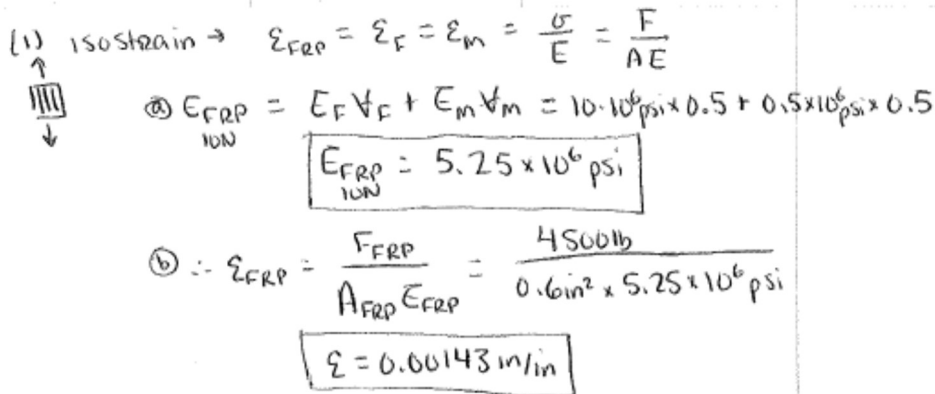 (1) isostrain → ε_FRP = ε_F = ε_m = σ/E = F/AE
ⓐ E_FRP LON = E_F V_F + E_m V_m = 10·10⁶psi × 0.5 + 0.5×10⁶psi × 0.5
E_FRP LON = 5.25 × 10⁶ psi
ⓑ ∴ ε_FRP = F_FRP / A_FRP E_FRP = 4500lb / 0.6in² × 5.25 × 10⁶ psi
ε = 0.00143 in/in